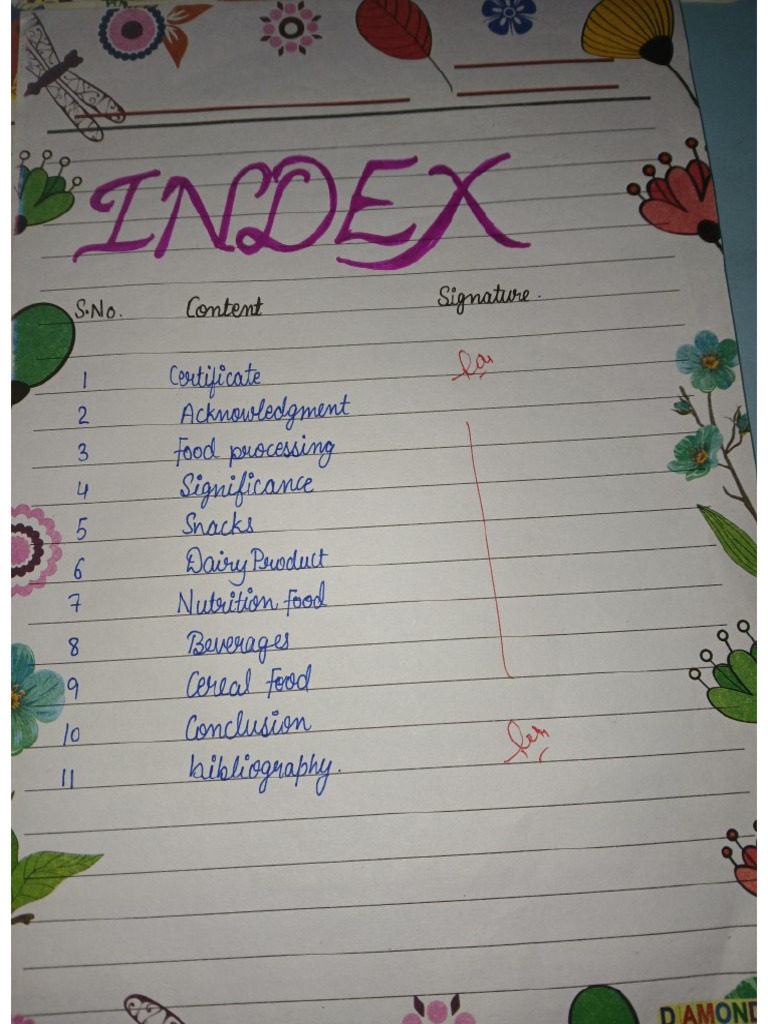 INDEX
S.No. Content Signature.
1 Certificate
2 Acknowledgment
3 Food processing
4 Significance
5 Snacks
6 Dairy Product
7 Nutrition Food
8 Beverages
9 Cereal Food
10 Conclusion
11 bibliography.
DIAMOND